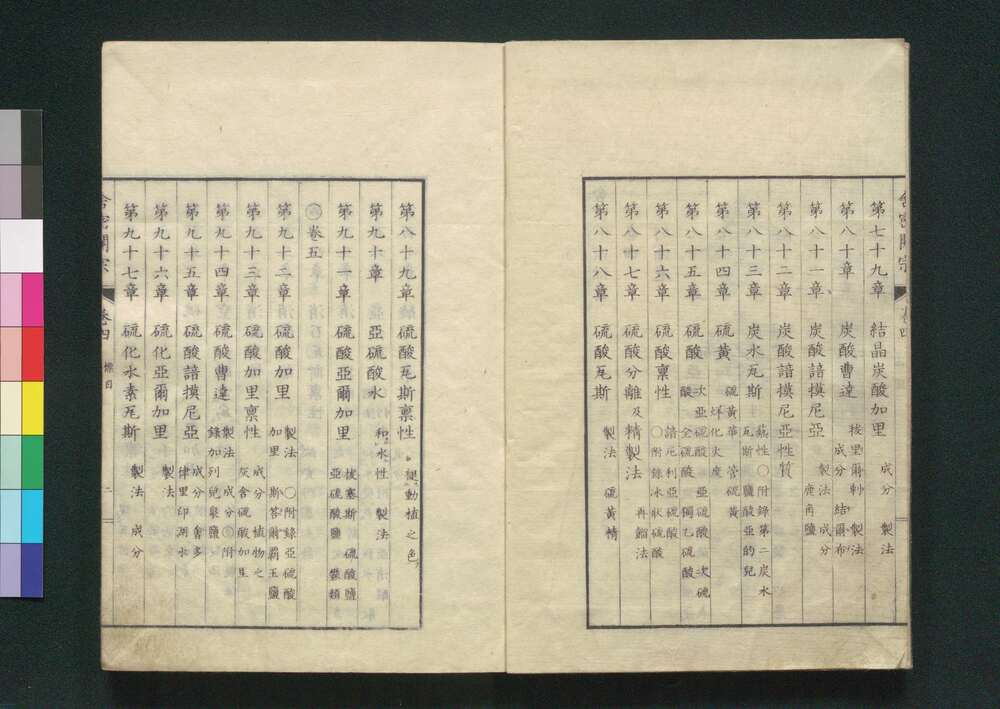 第七十九章 結晶炭酸加里 成分 製法
第八十章 炭酸曹達 成分 製法
第八十一章 炭酸諳模尼亞 製法 成分 鹿角鹽
第八十二章 炭酸諳模尼亞性質
第八十三章 炭水瓦斯 瓦斯 附錄第二炭水
第八十四章 硫黄 硫黄華 管硫黄
第八十五章 硫酸 次亞硫酸 亞硫酸 次硫酸 全硫酸
第八十六章 硫酸稟性 諳厄利亞硫酸 〇附錄氷狀硫酸
第八十七章 硫酸分離及精製法 再餾法
第八十八章 硫酸瓦斯 製法 硫黄精
舎密開宗 卷四
第八十九章 硫酸瓦斯稟性 褪動植之色
第九十章 亞硫酸水 和水性 製法
第九十一章 硫酸亞爾加里 硫酸鹽 亞硫酸鹽
卷五
第九十二章 硫酸加里 製法 〇附錄亞硫酸加里 斯答爾覇王鹽
第九十三章 硫酸加里稟性 成分 植物之灰含硫酸加里
第九十四章 硫酸曹達 製法 成分 附錄加列兒泉鹽
第九十五章 硫酸諳摸尼亞 成分 製法
第九十六章 硫化亞爾加里 製法
第九十七章 硫化水素瓦斯 製法 成分
舎密開宗 卷四 標目 二